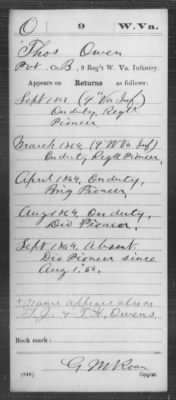 O 9 W. Va.
Thos Owen
Pvt., Co. B, 9 Reg't W. Va. Infantry.
Appears on Returns as follows:
Sept 1864 (9" W Va Inf)
On duty, Regtl
Pioneer
March 1864 (9 W Va Inf)
On duty Regtl Pioneer.
April 1864, On duty,
Brig Pioneer.
Aug 1864, On duty,
Div Pioneer.
Sept 1864. Absent
Div Pioneer since
Aug 1, 64.
+ Name appears also as
T. J. & T. H. Owens
Book mark:
G M Roan
(546) Copyist.